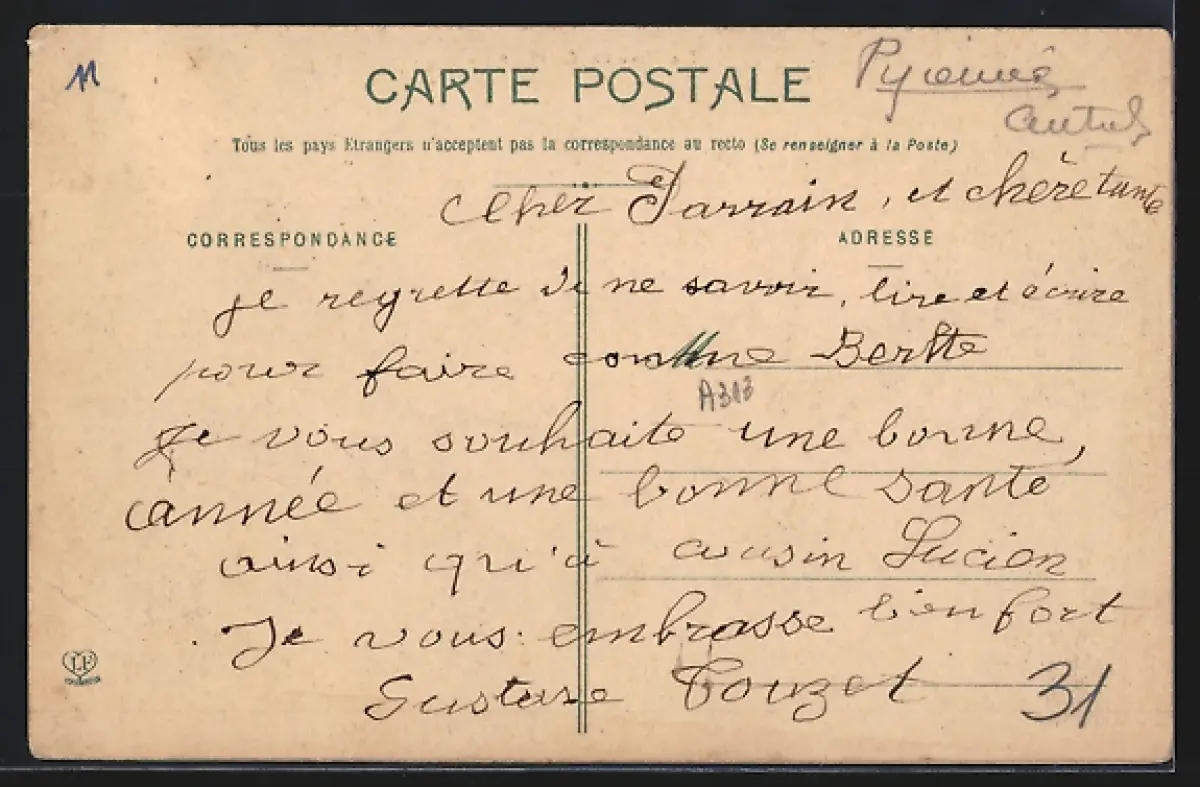 M
CARTE POSTALE
Pyrénées
Tous les pays Etrangers n'acceptent pas la correspondance au recto (Se renseigner à la Poste)
Cher Parrain, et chère tante
CORRESPONDANCE
ADRESSE
je regrette de ne savoir, lire et écrire
pour faire comme Berthe
A313
Je vous souhaite une bonne,
année et une bonne santé
ainsi qu'à cousin Lucien
Je vous embrasse bien fort
Gustave Touzet
31